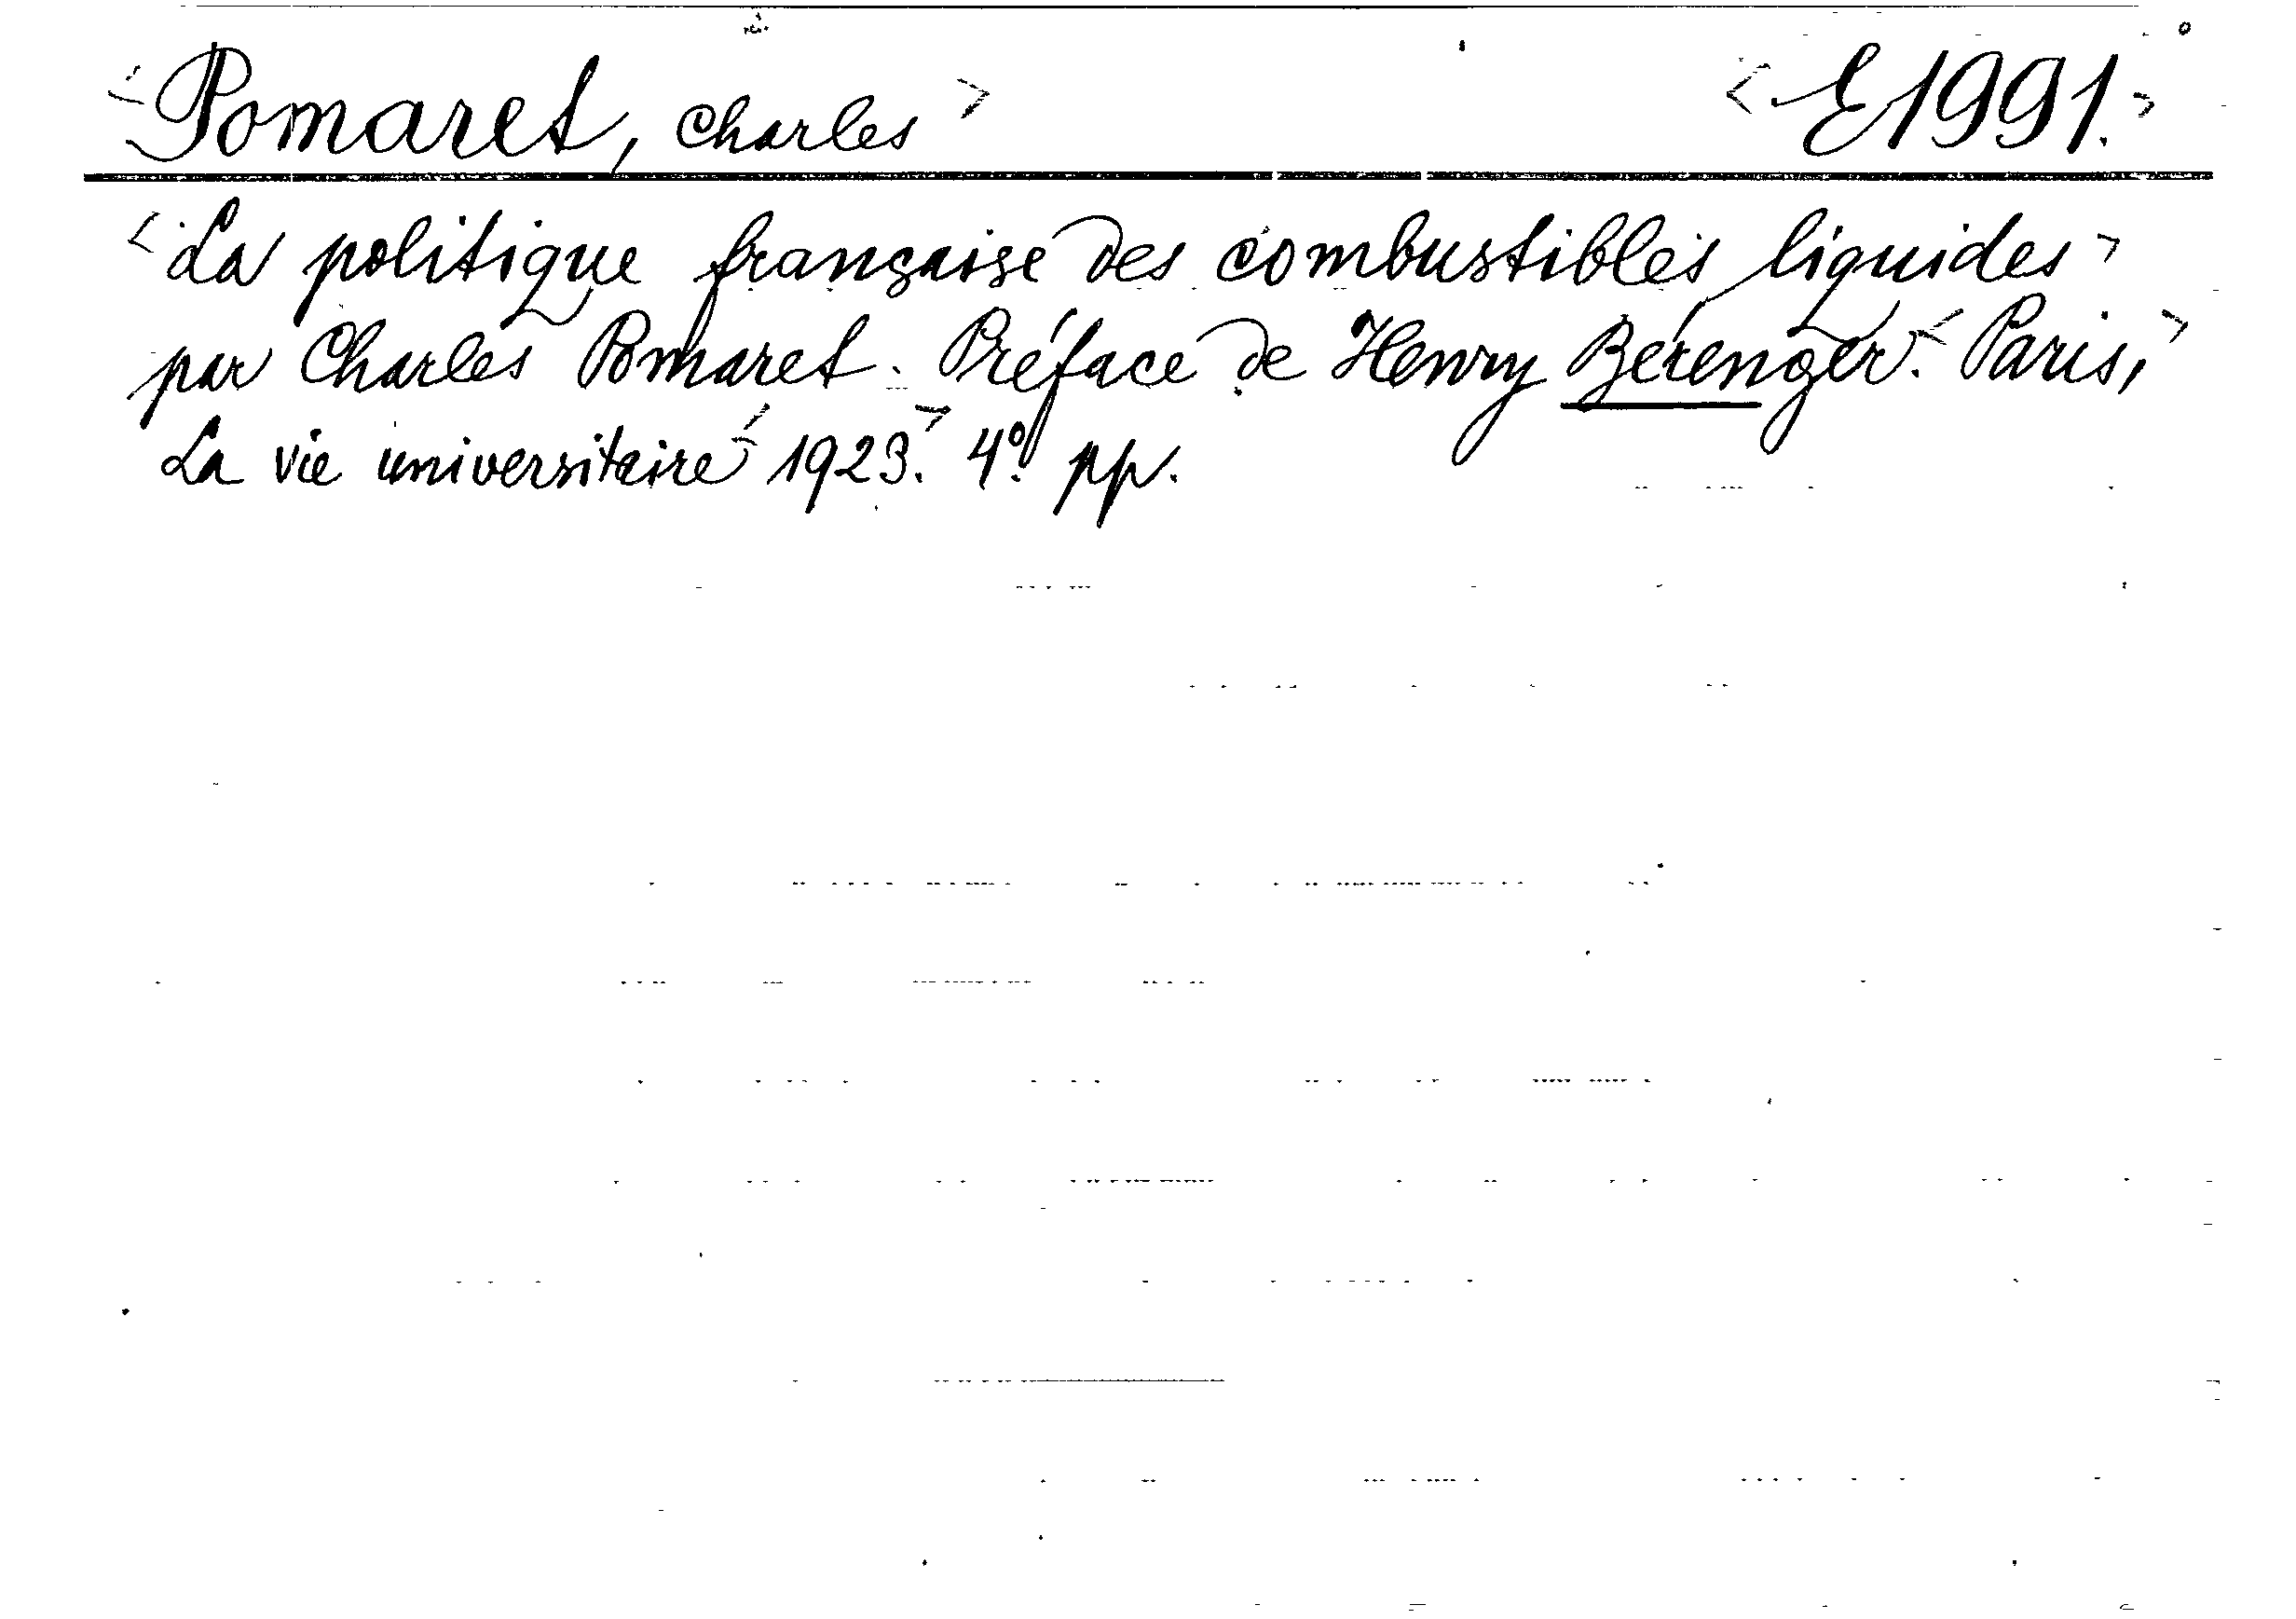 <Pomaret, Charles> <E1991.>
<La politique française des combustibles liquides>
par Charles Pomaret. Préface de Henry Bérenger. <Paris,>
La vie universitaire <1923.> 4º. pp.